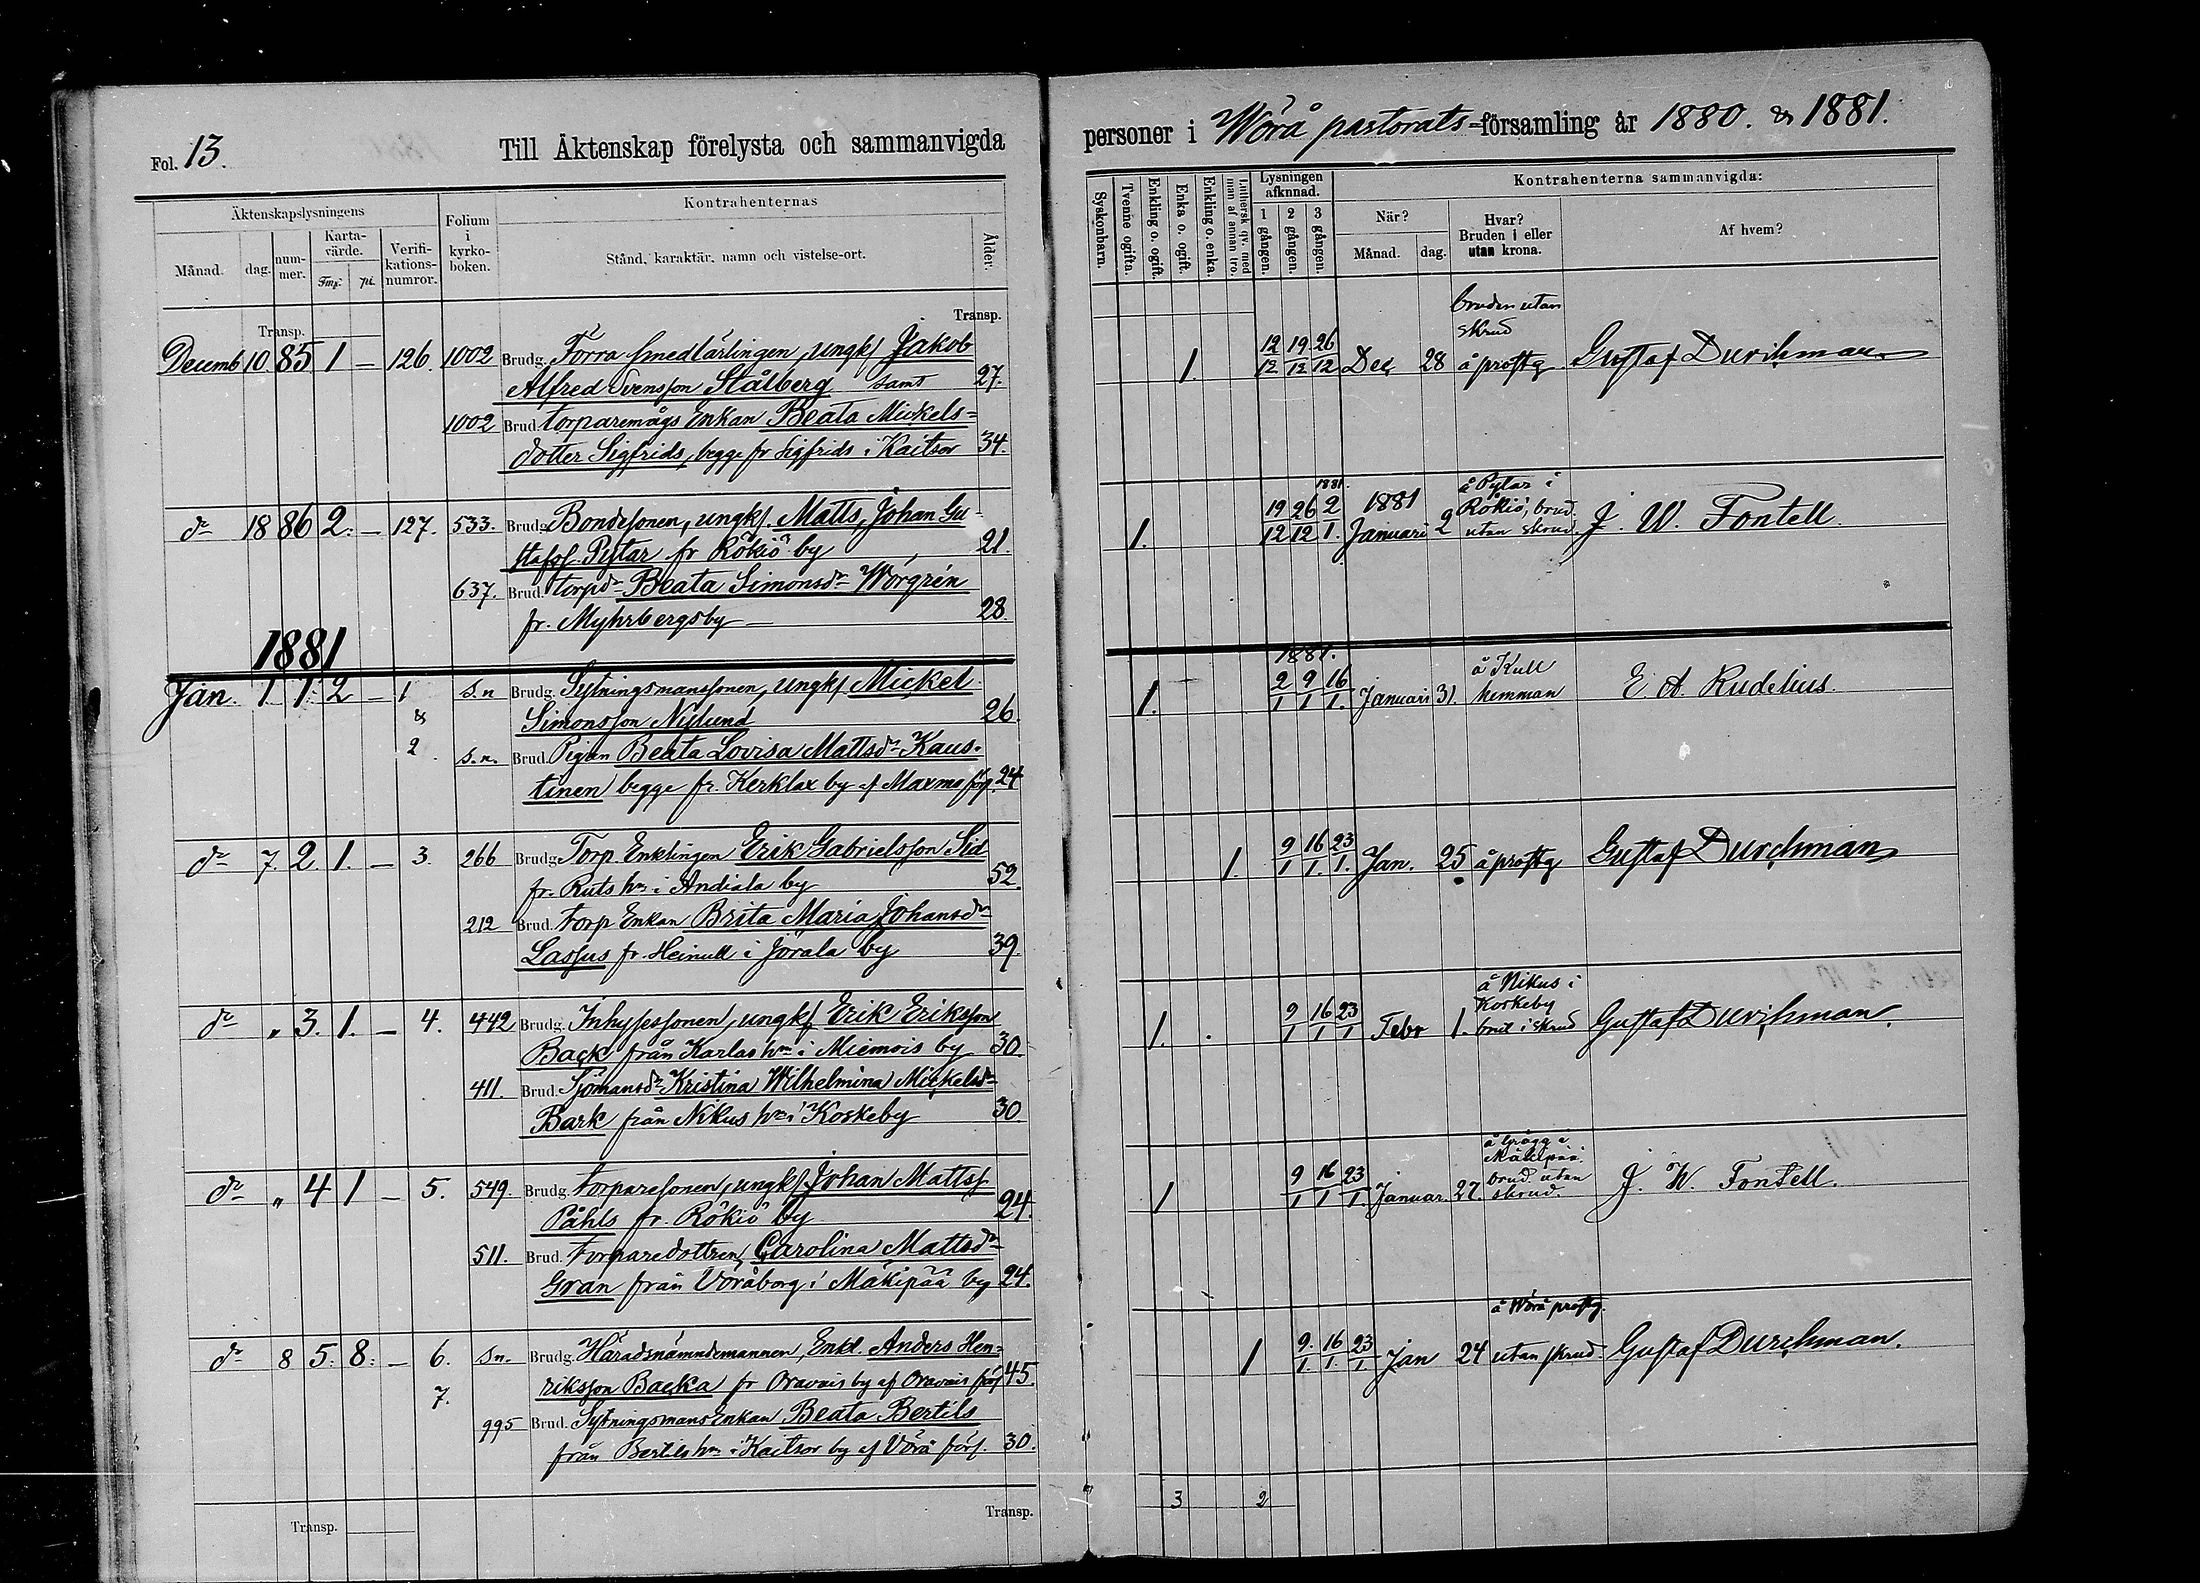 Fol. 13.
Till Äktenskap förelysta och sammanvigda
Äktenskapslysningens
Månad.
dag.
num-
mer.
Karta-
värde.
Fmk.
pi.
Verifi-
kations-
numror.
Folium
i
kyrko-
boken.
Kontrahenternas
Stånd, karaktär, namn och vistelse-ort.
Ålder.
Transp.
Transp.
Decemb 10 85 1 — 126. 1002 Brudg. Förra smedlärlingen, ungk. Jakob
Alfred Svensson Stålberg samt 27.
1002 Brud. torparemågs Enkan Beata Mickels-
dotter Sigfrids, begge fr Sigfrids i Kaitsor 34.
do 18 86 2. — 127. 533. Brudg. Bondesonen, ungk. Matts Johan Gu-
stafss. Pytar fr Rökiö by 21.
637. Brud. torpdr Beata Simonsdr Wörgrén
fr. Myhrbergsby — 28
1881
Jan. 1 1. 2 — 1 s.n Brudg. Sytningsmanssonen, ungk Mickel
Simonsson Nylund 26.
&
2. s.n. Brud. Pigan Beata Lovisa Mattsdr Kaus-
tinen begge fr. Kerklax by af Maxmo förs. 24
do 7. 2. 1. — 3. 266 Brudg. Torp. Enklingen Erik Gabrielsson Sid
fr. Ruts hn i Andiala by 52.
212 Brud. torp Enkan Brita Maria Johansdr
Lassus fr. Heinull i Jörala by 39.
do " 3. 1. — 4. 442 Brudg. Inhysessonen, ungk Erik Eriksson
Back från Karlas hn i Miemois by 30.
411. Brud. Sjömansdr Kristina Wilhelmina Mickelsdr
Bark från Nikus hn i Koskeby 30
do " 4 1 — 5. 549. Brudg. torparesonen, ungk Johan Mattss
Påhls fr. Rökiö by 24.
511. Brud. torparedottren, Carolina Mattsdr
Gran från Voråborg i Mäkipää by 24.
do 8 5. 8. — 6. sn. Brudg. Häradsnämndemannen, Enkl. Anders Hen-
riksson Backa fr Oravais by af Oravais förs 45.
7.
995 Brud. Sytningsmans Enkan Beata Bertils
från Bertils hn i Kaitsor by af Vörå förs. 30.
Transp.
Transp.
personer i Wörå pastorats-församling år 1880. & 1881.
Syskonbarn.
Tvenne ogifta.
Enkling o. ogift.
Enka o. ogift.
Enkling o. enka.
Luthersk qv. med
man af annan tro.
Lysningen
afkunnad.
1 gången.
2 gången.
3 gången.
Kontrahenterna sammanvigda:
När?
Månad.
dag.
Hvar?
Bruden i eller
utan krona.
Af hvem?
bruden utan
skrud
1. 12/12 19/12 26/12 Dec 28 å prostg Gustaf Durchman
1881.
å Pytar i
1. 19/12 26/12 2/1. 1881 Januari 2 Rökiö, brud.
utan skrud. J. W. Fontell.
1881.
1. 2/1 9/1 16/1. Januari 31. å Kull
hemman E A. Rudelius.
1. 9/1 16/1. 23/1. Jan. 25 å prostg Gustaf Durchman
å Nikus i
Koskeby
1. 9/1 16/1 23/1 Febr 1. brud i skrud Gustaf Durchman.
Mäkipää
1 9/1 16/1 23/1. Januar. 27. brud. utan
skrud. J. W. Fontell.
å Wörå prostg.
1 9./1. 16/1. 23/1. Jan 24 utan skrud Gustaf Durchman.
3 2